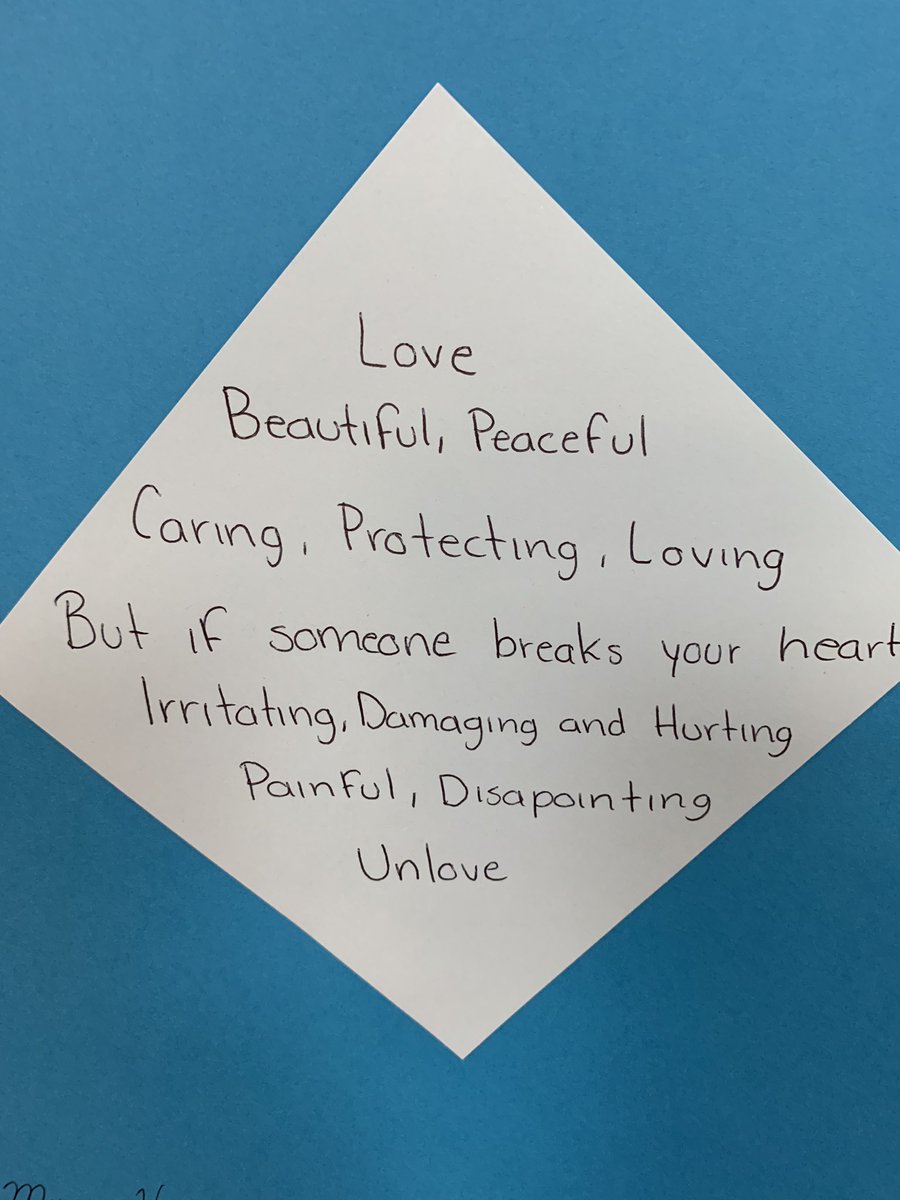 Love
Beautiful, Peaceful
Caring, Protecting, Loving
But if someone breaks your heart
Irritating, Damaging and Hurting
Painful, Disapointing
Unlove